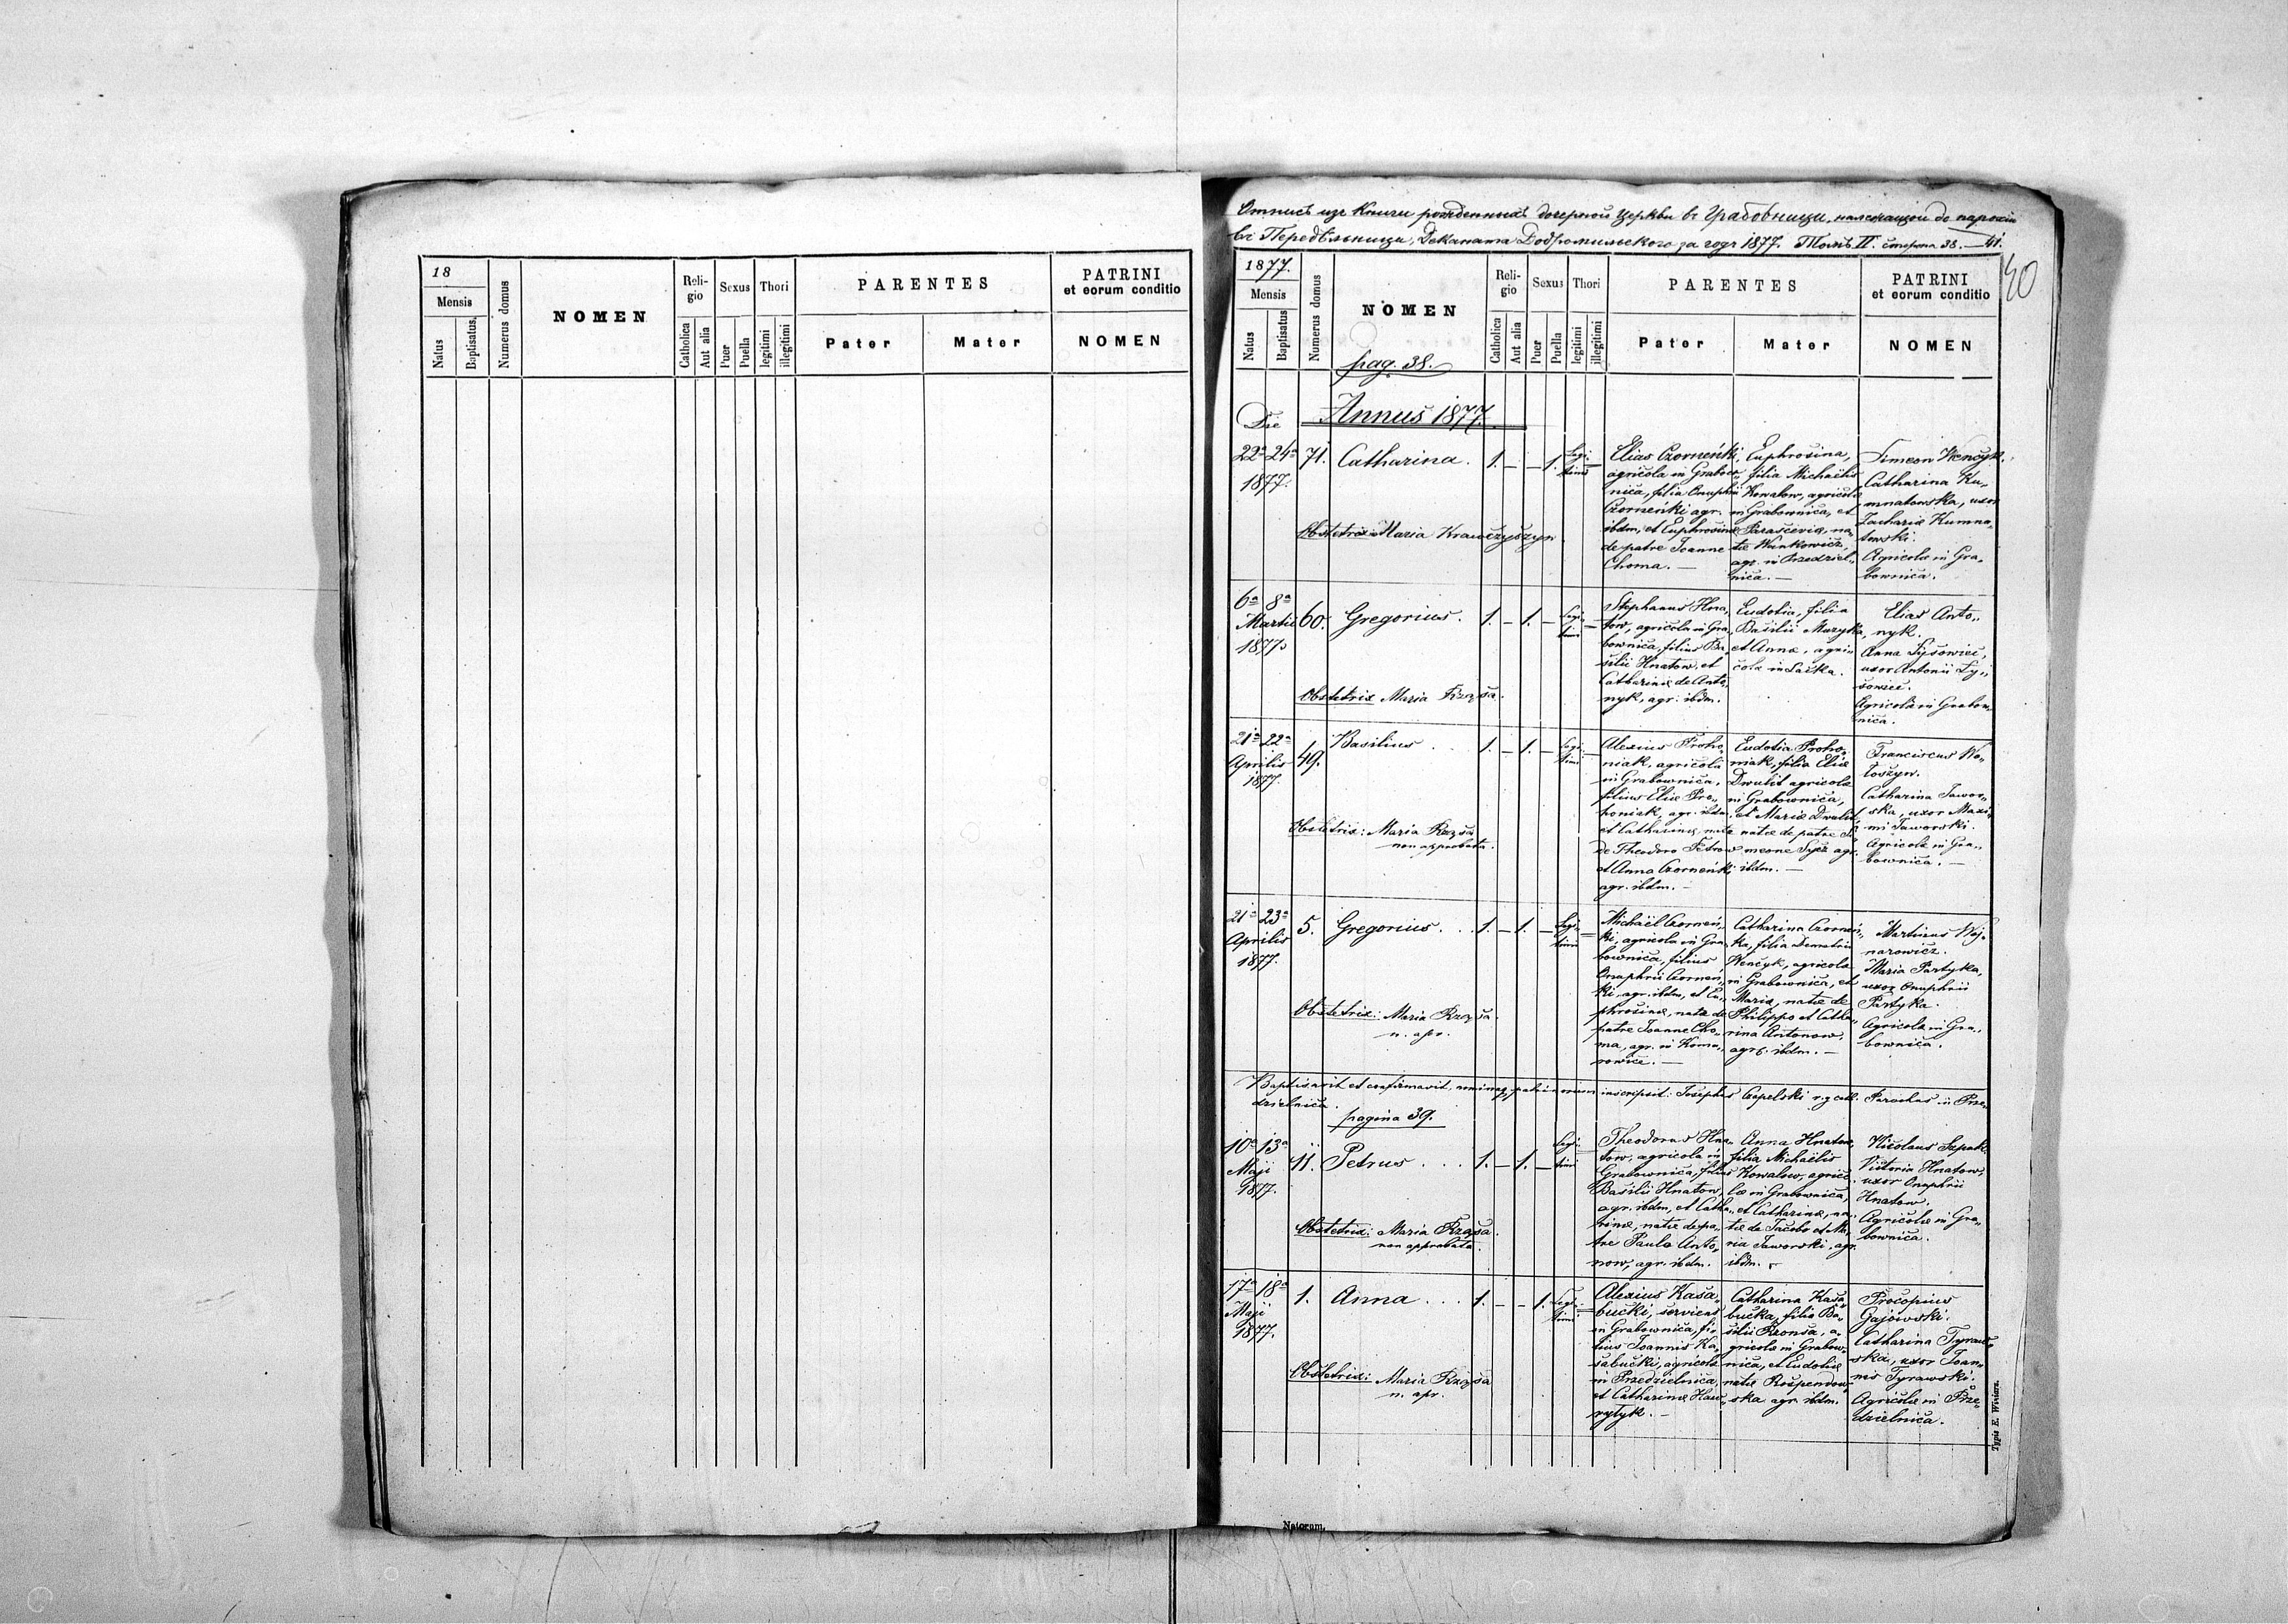 18
Mensis
Natus
Baptisatus
Numerus domus
NOMEN
Reli-
gio
Catholica
Aut alia
Sexus
Puer
Puella
Thori
legitimi
illegitimi
PARENTES
Pater
Mater
PATRINI
et eorum conditio
NOMEN
Отписъ изъ Книги рожденныхъ дочерной Церкви въ Грабовници, належащой до парохіи
въ Передѣльници, Деканата Добромильского за годъ 1877. Томъ II. сторона 38.—41.
40
1877.
Mensis
Natus
Baptisatus
Numerus domus
NOMEN
pag. 38.
Reli-
gio
Catholica
Aut alia
Sexus
Puer
Puella
Thori
legitimi
illegitimi
PARENTES
Pater
Mater
PATRINI
et eorum conditio
NOMEN
Die
Annus 1877.
22a 24a
1877.
71.
Catharina.
1. — — 1.
Legi-
timi
Obstetrix: Maria Krawczyszyn
Elias Czorneńki,
agricola in Grabow-
nica, filia Onuphrii
Czorneńki agr.
ibdm, et Euphrosinæ
de patre Joanne
Choma. —
Euphrosina,
filia Michaëlis
Kowalow, agricolæ
in Grabownica, et
Parasceviæ, na-
tæ Wankowicz,
agr. in Przedziel-
nica. —
Simeon Wenčyk.
Catharina Ku-
mnatowska, uxor
Zachariæ Kumna-
towski.
Agricolæ in Gra-
bownica.
6a 8a
Martii
1877.
60.
Gregorius.
1. — 1. —
Legi-
timi
Obstetrix Maria Rząsa.
Stephanus Hna-
tow, agricola in Gra-
bownica, filius Ba-
silii Hnatow, et
Catharinæ de Anto-
nyk, agr. ibdm.
Eudotia, filia
Basilii Muzyka,
et Annæ, agri-
colæ in Lačka.
Elias Anto-
nyk.
Anna Lysowiec,
uxor Antonii Ly-
sowiec.
Agricolæ in Grabow-
nica.
21a 22a
Aprilis
1877.
49.
Basilius . .
1. — 1. —
Legi-
timi
Obstetrix: Maria Rząsa
non approbata.
Alexius Proho-
niak, agricola
in Grabownica,
filius Eliæ Pro-
honiak, agr. ibdm
et Catharinæ, natæ
de Theodoro Petrow
et Anna Czorneńki
agr. ibdm. —
Eudotia Proho-
niak, filia Eliæ
Dwulit agricolæ
in Grabownica,
et Mariæ Dwulit,
natæ de patre Si-
meone Sycz agr.
ibdm. —
Franciscus Wo-
łoszyn.
Catharina Jawor-
ska, uxor Maxi-
mi Jaworski.
Agricolæ in Gra-
bownica. —
21a 23a
Aprilis
1877.
5.
Gregorius. . .
1. — 1. —
Legi-
timi
Obstetrix: Maria Rząsa
n. apr.
Michaël Czorneń-
ki, agricola in Gra-
bownica, filius
Onuphrii Czorneń-
ki, agr. ibdm, et Eu-
phrosinæ, natæ de
patre Joanne Cho-
ma, agr. in Komo-
rowice. —
Catharina Czorneń-
ka, filia Demetrii
Wenčyk, agricolæ
in Grabownica, et
Mariæ, natæ de
Philippo et Catha-
rina Antonow,
agr. ibdm. —
Martinus Woj-
narowicz.
Maria Partyka,
uxor Onuphrii
Partyka.
Agricolæ in Gra-
bownica.
Baptisavit et confirmavit, nominaq patrinorum inscripsit: Josephus Czapelski Parochus in Prze-
dzielnica.
pagina 39.
10a 13a
Maji
1877.
11.
Petrus . . . .
1. — 1. —
Legi-
timi
Obstetrix: Maria Rząsa.
non approbata.
Theodorus Hna-
tow, agricola in
Grabownica, filius
Basilii Hnatow,
agr. ibdm, et Catha-
rinæ, natæ de pa-
tre Paulo Anto-
now, agr. ibdm.
Anna Hnatow,
filia Michaëlis
Kowalow, agrico-
læ in Grabownica,
et Catharinæ, na-
tæ de Jacobo et Ma-
ria Jaworski, agr.
ibdm.
Nicolaus Szpak.
Victoria Hnatow,
uxor Onuphrii
Hnatow.
Agricolæ in Gra-
bownica.
17a 18a
Maji
1877.
1.
Anna . . . .
1. — — 1.
Legi-
timi
Obstetrix: Maria Rząsa
n. apr.
Alexius Kasa-
bucki, serviens
in Grabownica, fi-
lius Joannis Ka-
sabucki, agricolæ
in Przedzielnica,
et Catharinæ Haw-
rylyk. —
Catharina Kasa-
bucka, filia Ba-
silii Rzonsa, a-
gricolæ in Grabow-
nica, et Eudotiæ
natæ Rospendow-
ska agr. ibdm.
Procopius
Gajowski.
Catharina Tyraw-
ska, uxor Joan-
nis Tyrawski.
Agricolæ in Prze-
dzielnica.
Typis E. Winiarz.
Natorum.